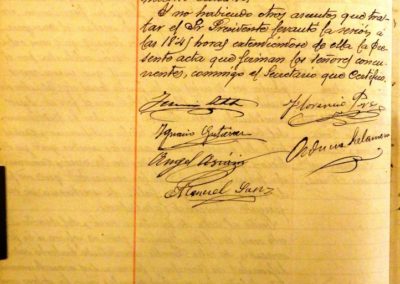 Y no habiendo otros asuntos que tra-
tar el Sr Presidente levantó la sesión a
las 18'45 horas extendiéndose de ella la pre-
sente acta que firman los señores concu-
rrentes, conmigo el Secretario que Certifico.
Florencio
Ignacio Gutierrez
Angel
Manuel Sanz